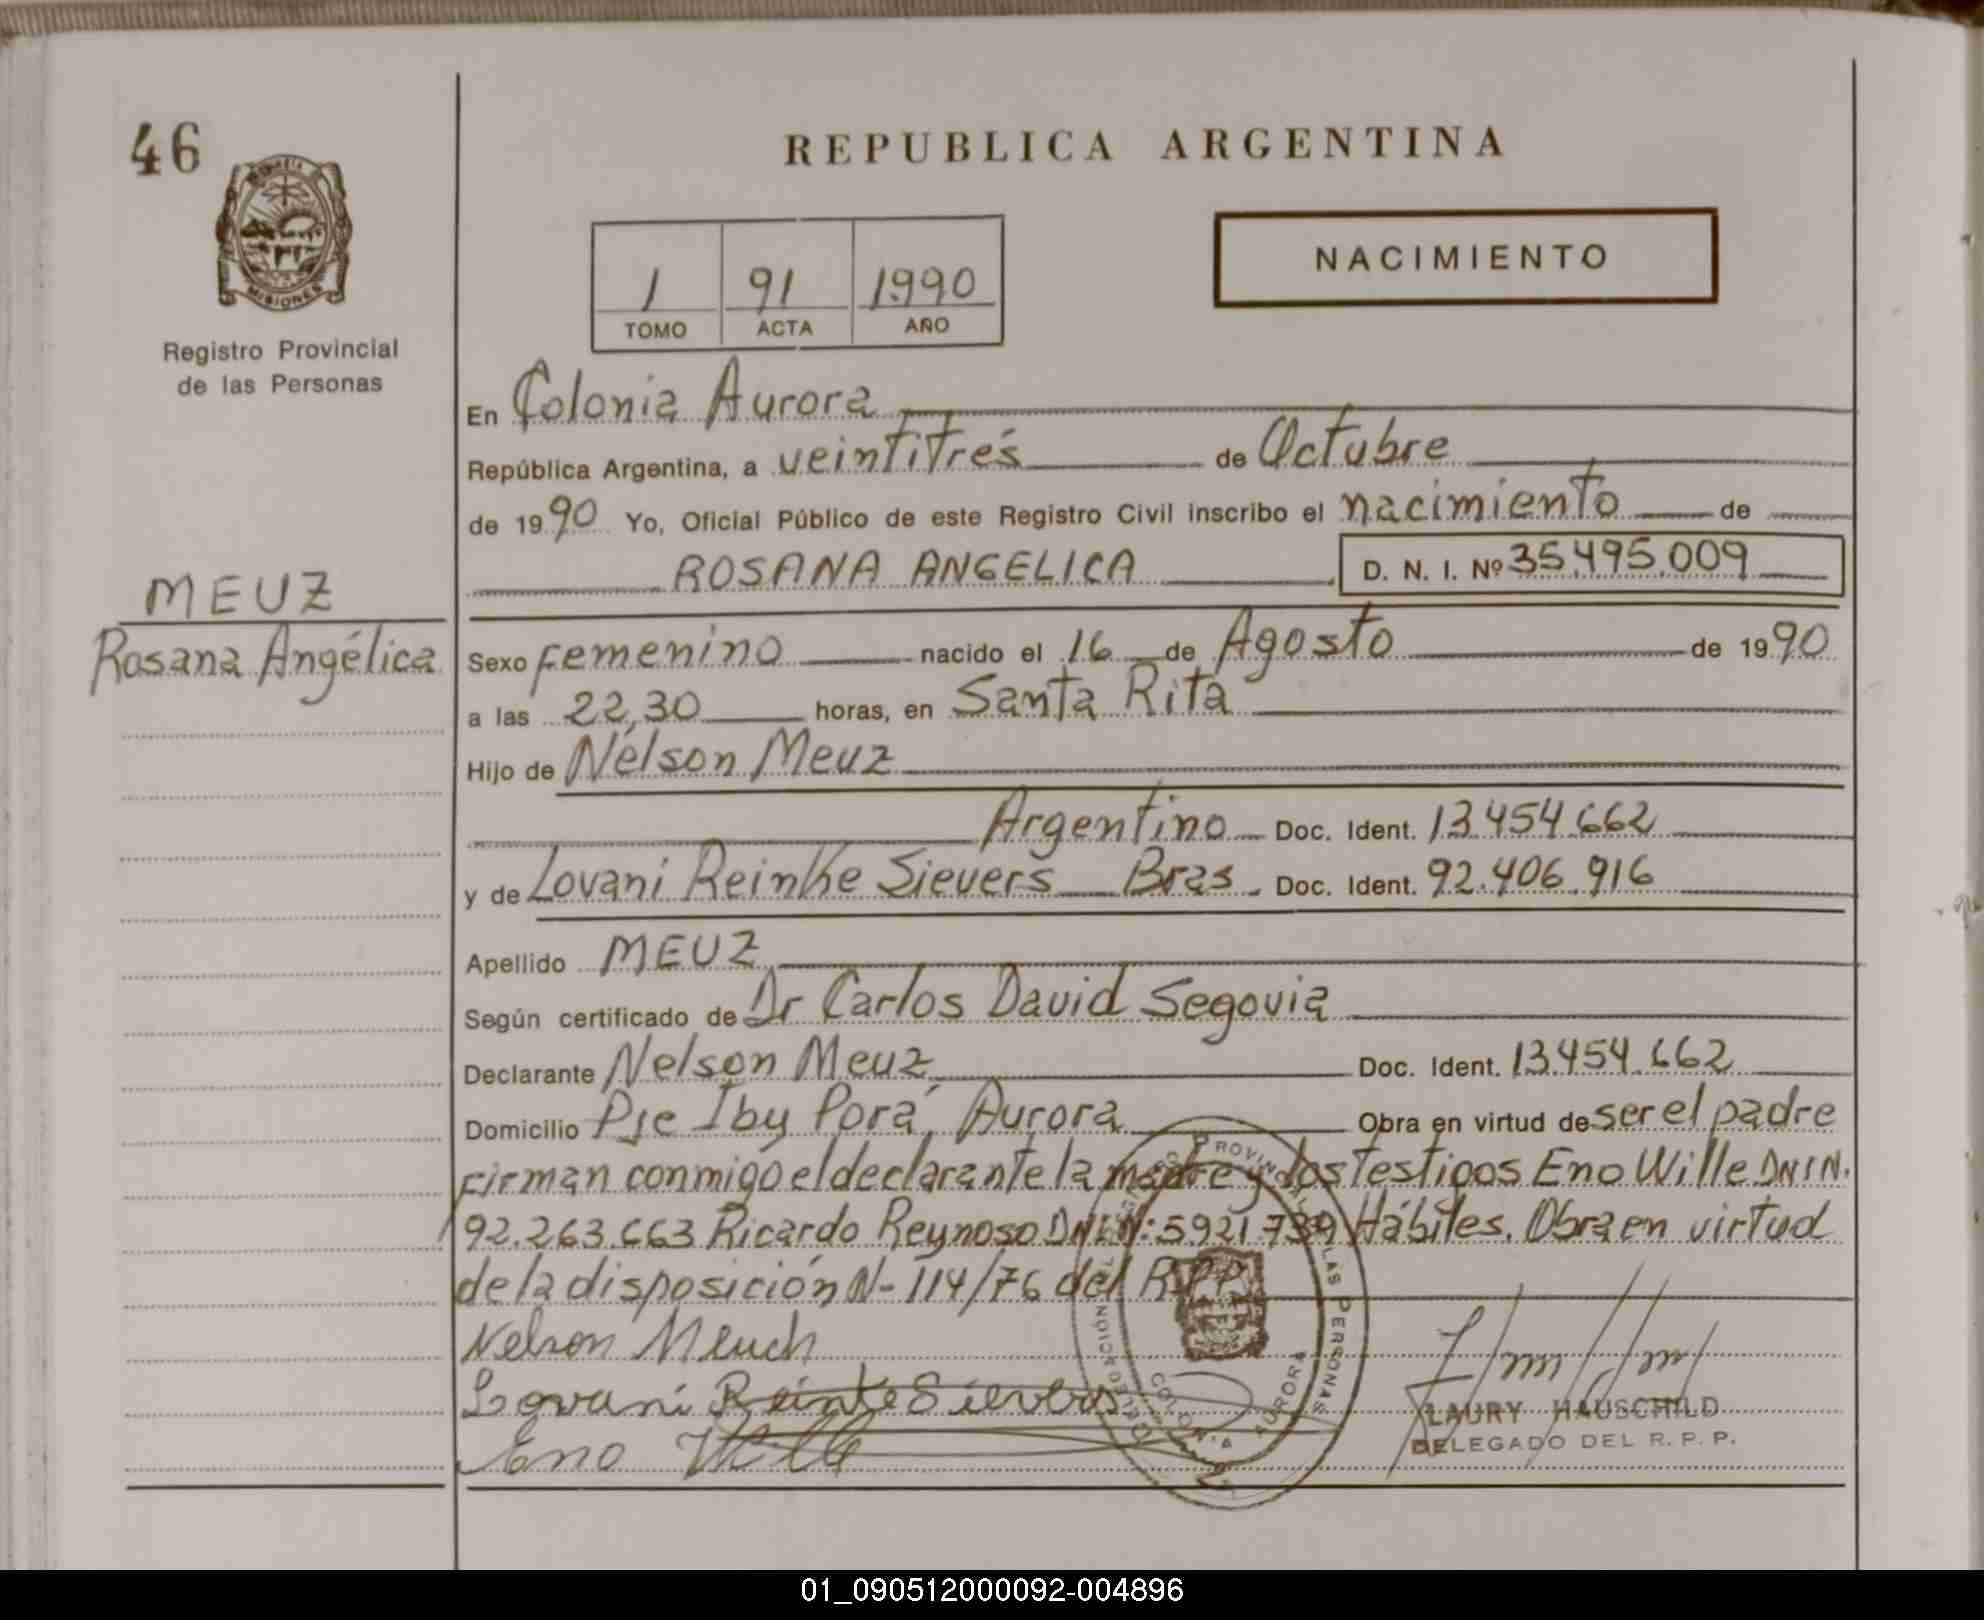 46
MISIONES
Registro Provincial
de las Personas
MEUZ
Rosana Angélica
REPUBLICA ARGENTINA
1 91 1990
TOMO ACTA AÑO
NACIMIENTO
En Colonia Aurora
República Argentina, a veintitrés de Octubre
de 19 90 Yo, Oficial Público de este Registro Civil inscribo el nacimiento de
ROSANA ANGELICA D. N. I. Nº 35.495.009
Sexo Femenino nacido el 16 de Agosto de 19 90
a las 22,30 horas, en Santa Rita
Hijo de Nélson Meuz
Argentino Doc. Ident. 13.454.662
y de Lovani Reinke Sievers Bras. Doc. Ident. 92.406.916
Apellido MEUZ
Según certificado de Dr Carlos David Segovia
Declarante Nelson Meuz Doc. Ident. 13.454.662
Domicilio Pje Iby Porá, Aurora Obra en virtud de ser el padre
firman conmigo el declarante la madre y los testigos Eno Wille DNI N.
92.263.663 Ricardo Reynoso DNI N: 5921.739 Hábiles. Obra en virtud
de la disposición N- 114/76 del R.P.P
Nelson Meuch
Lovani Reinke Sievers
Eno Wille
LAURY HAUSCHILD
DELEGADO DEL R. P. P.
COLONIA AURORA
01_090512000092-004896